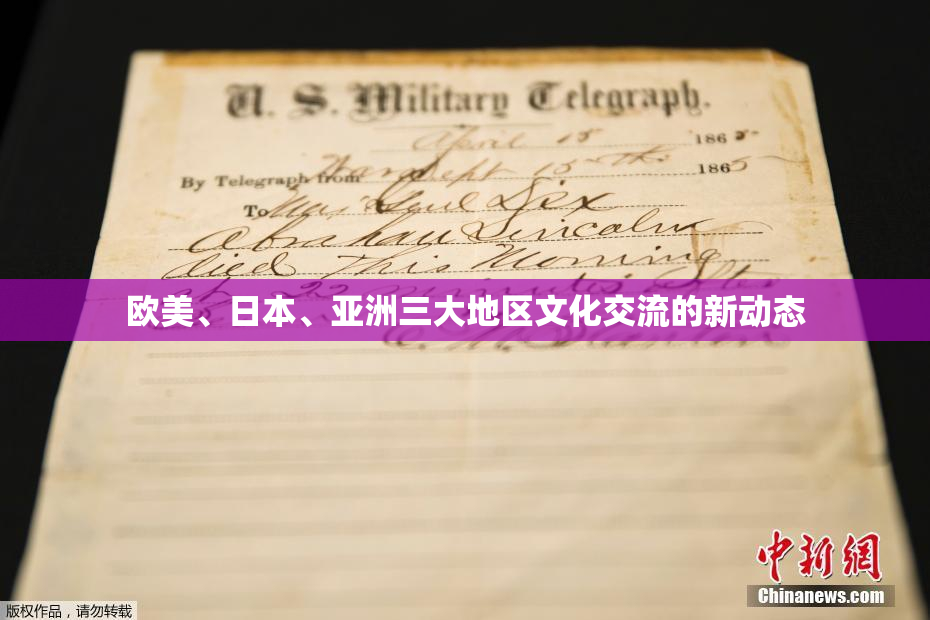 U. S. Military Telegraph.
April 15 1865
By Telegraph from War Dept 15th 1865
To Maj Genl Dix
Abraham Lincoln
died This Morning
at 22 minutes after
欧美、日本、亚洲三大地区文化交流的新动态
中新网
Chinanews.com
版权作品，请勿转载